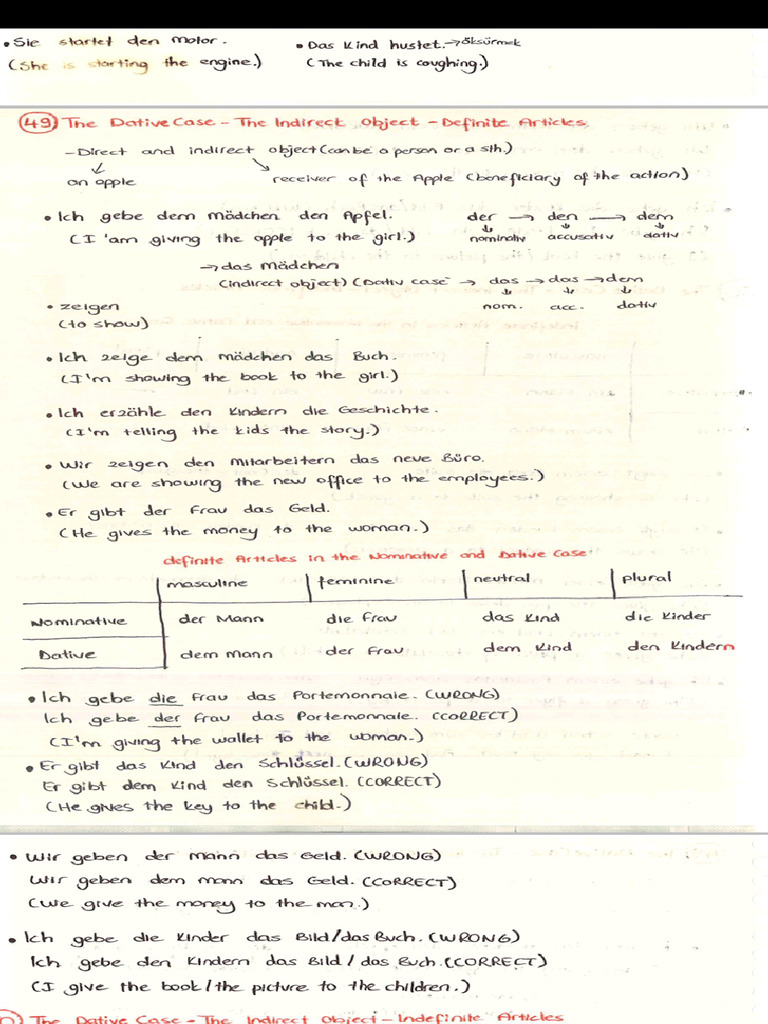 • Sie startet den Motor. • Das Kind hustet. → öksürmek
(She is starting the engine.) (The child is coughing.)
49) The Dative Case - The Indirect Object - Definite Articles
- Direct and indirect object (can be a person or a sth.)
an apple receiver of the Apple (beneficiary of the action)
• Ich gebe dem mädchen den Apfel. der → den → dem
(I'am giving the apple to the girl.) nominativ accusativ dativ
→ das mädchen
(indirect object) (Dativ case → das → das → dem
• zeigen nom. acc. dativ
(to show)
• Ich zeige dem mädchen das Buch.
(I'm showing the book to the girl.)
• Ich erzähle den Kindern die Geschichte.
(I'm telling the kids the story.)
• Wir zeigen den Mitarbeitern das neue Büro.
(We are showing the new office to the employees.)
• Er gibt der Frau das Geld.
(He gives the money to the woman.)
definite Articles in the Nominative and Dative Case
masculine feminine neutral plural
Nominative der Mann die Frau das Kind die Kinder
Dative dem Mann der Frau dem Kind den Kindern
• Ich gebe die Frau das Portemonnaie. (WRONG)
Ich gebe der Frau das Portemonnaie. (CORRECT)
(I'm giving the wallet to the woman.)
• Er gibt das Kind den Schlüssel. (WRONG)
Er gibt dem Kind den Schlüssel. (CORRECT)
(He gives the key to the child.)
• Wir geben der Mann das Geld. (WRONG)
Wir geben dem mann das Geld. (CORRECT)
(We give the money to the man.)
• Ich gebe die Kinder das Bild/das Buch. (WRONG)
Ich gebe den Kindern das Bild / das Buch. (CORRECT)
(I give the book / the picture to the children.)
The Dative Case - The Indirect Object - Indefinite Articles